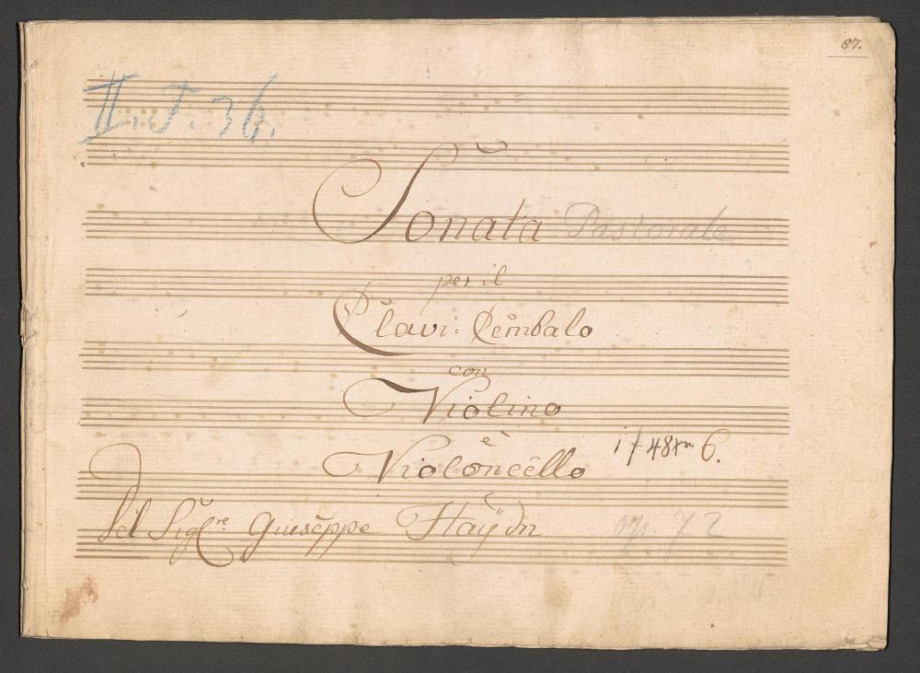 87.
II. J. 36.
Sonata Pastorale
per il
Clavi: Cembalo
con
Violino
e
Violoncello
6.
Del Sigl.re Giuseppe Haÿdn
op. 72